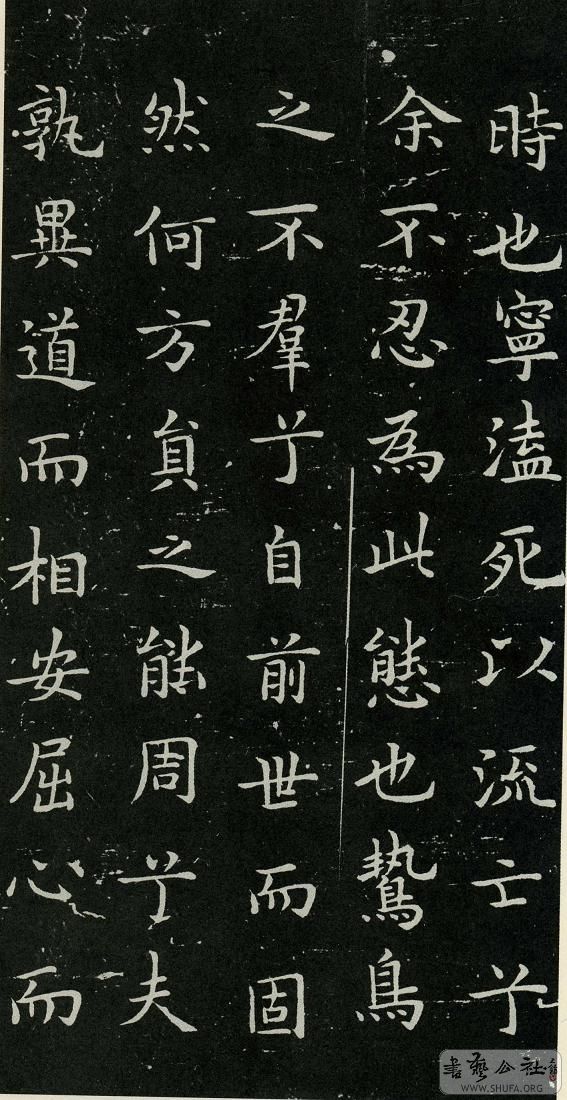 時也寧溘死以流亡兮
余不忍為此態也鷙鳥
之不羣兮自前世而固
然何方貟之能周兮夫
孰異道而相安屈心而
書藝公社
WWW.SHUFA.ORG